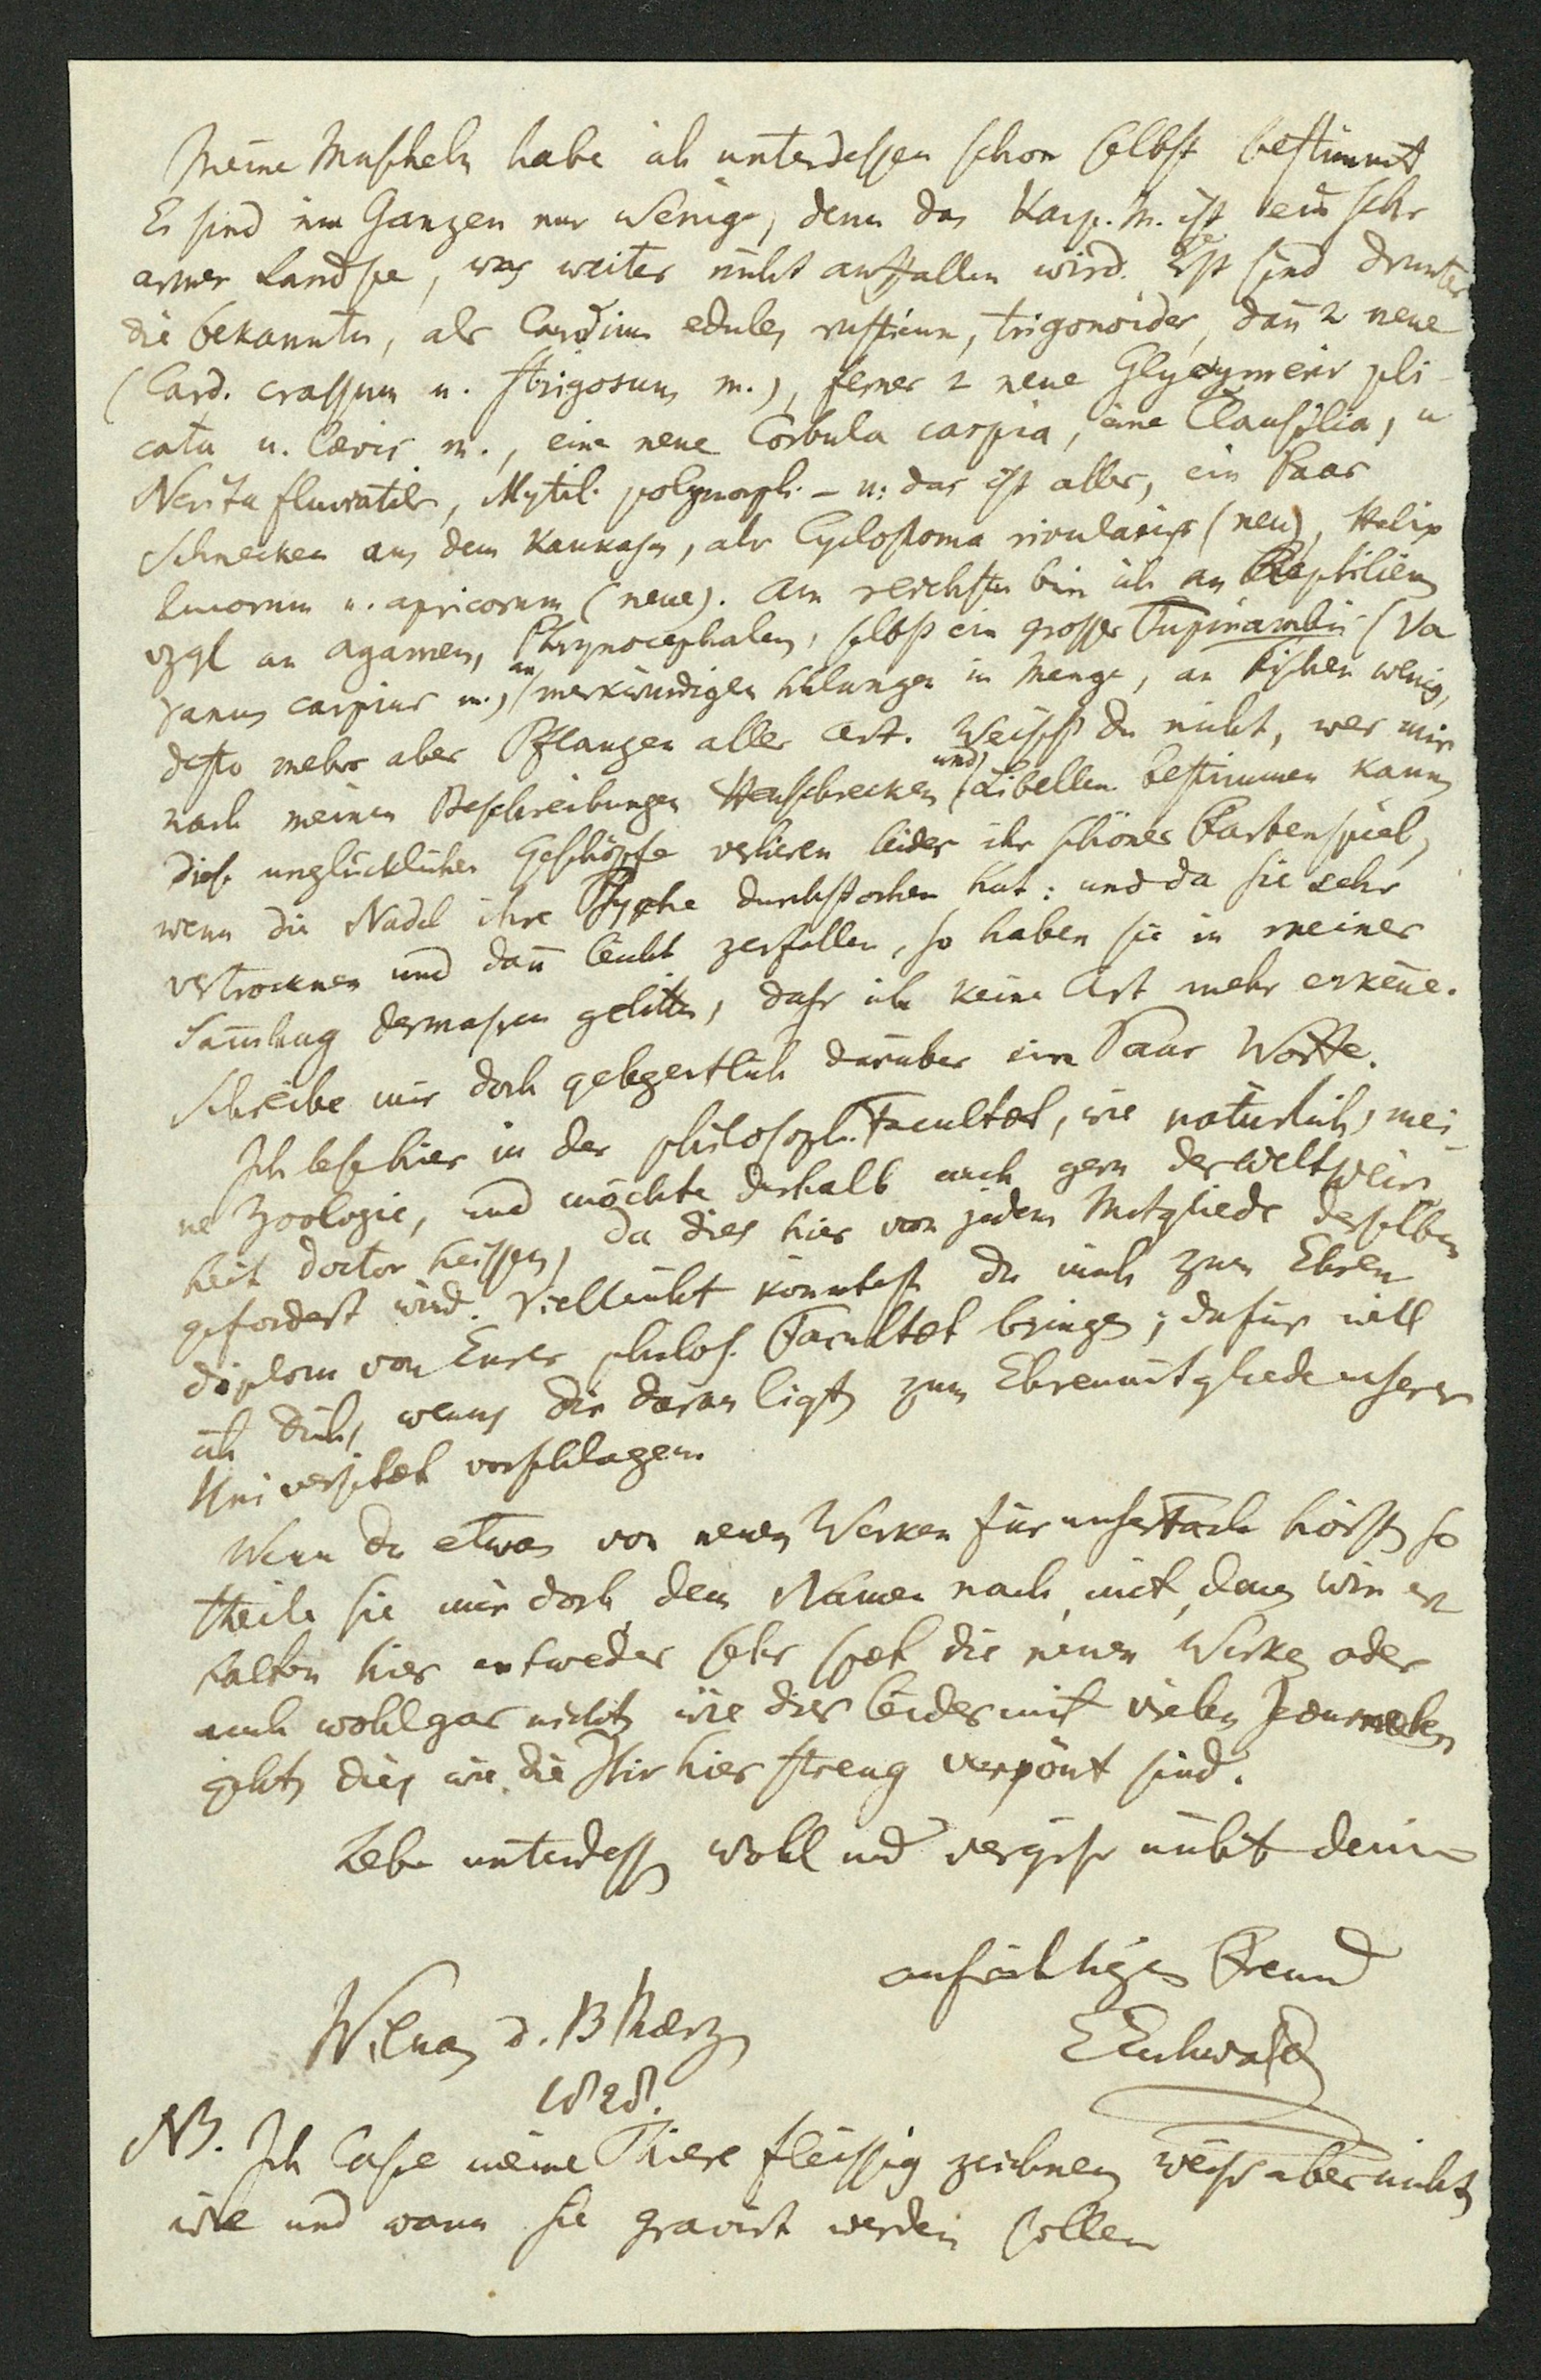 Meine Muscheln habe ich unterdessen schon selbst bestimmt
Es sind im Ganzen nur wenige, denn das Kasp. M. ist ein sehr
armer Landsee, was weiter nicht auffallen wird. Es sind drunter
die bekannten, als Cardium edule, rusticum, trigonoides, dañ 2 neue
(Card. crassum u. strigosum m.), ferner 2 neue Glycymeris pli-
cata u. laevis m., eine neue Corbula caspia, eine Clausilia, u
Nerita fluviatilis, Mytil. polymorph. – u: das ist alles, ein Paar
Schnecken aus dem Kaukasus, als Cyclostoma rivularis (neu), Helix
lucorum u. apricorum (neue). Am reichsten bin ich an Reptilien
vzgl an Agamen, Phrynocephalen, selbst ein grosser Tupinambis (Va
ranus caspius m.), an merkwürdigen Schlangen in Menge, an Fischen wenig,
desto mehr aber Pflanzen aller Art. Weisst du nicht, wer mir
nach meinen Beschreibungen Heuschrecken und Libellen bestimmen kann
diese unglücklichen Geschöpfe verlieren leider ihr schönes Farbenspiel,
wenn die Nadel ihre Psyche durchstochen hat: und da sie sehr
vertrocknen und dañ leicht zerfallen, so haben sie in meiner
Sam̄lung dermassen gelitten, dass ich keine Art mehr erkeñe.
Schreibe mir doch gelegentlich darüber ein Paar Worte.
Ich lese hier in der philosoph. Facultæt, wie natürlich, mei-
ne Zoologie, und möchte deshalb auch gern der Weltweis
heit Doctor heissen, da dies hier von jedem Mitgliede derselben
gefordert wird. Vielleicht könntest du mich zum Ehren
diplom von Eurer philos. Facultæt bringen; dafür will
ich dich, wenns dir daran ligt, zum Ehrenmitgliede unserer
Universitæt vorschlagen.
Wenn du etwas von neuen Werken für unser Fach hörst, so
theile sie mir doch dem Namen nach mit, denn wir er
halten hier entweder sehr spæt die neuen Werke oder
auch wohl gar nicht, wie dies leider mit vielen Journalen
geht, die, wie die Isis hier streng verpönt sind.
Lebe unterdess wohl und vergiss nicht deinen
aufrichtigen Freund
Wilna, d. 13 Mærz
EEichwald
1828.
NB. Ich lasse meine Thiere fleissig zeichnen, weiss aber nicht,
wie und wann sie gravirt werden sollen